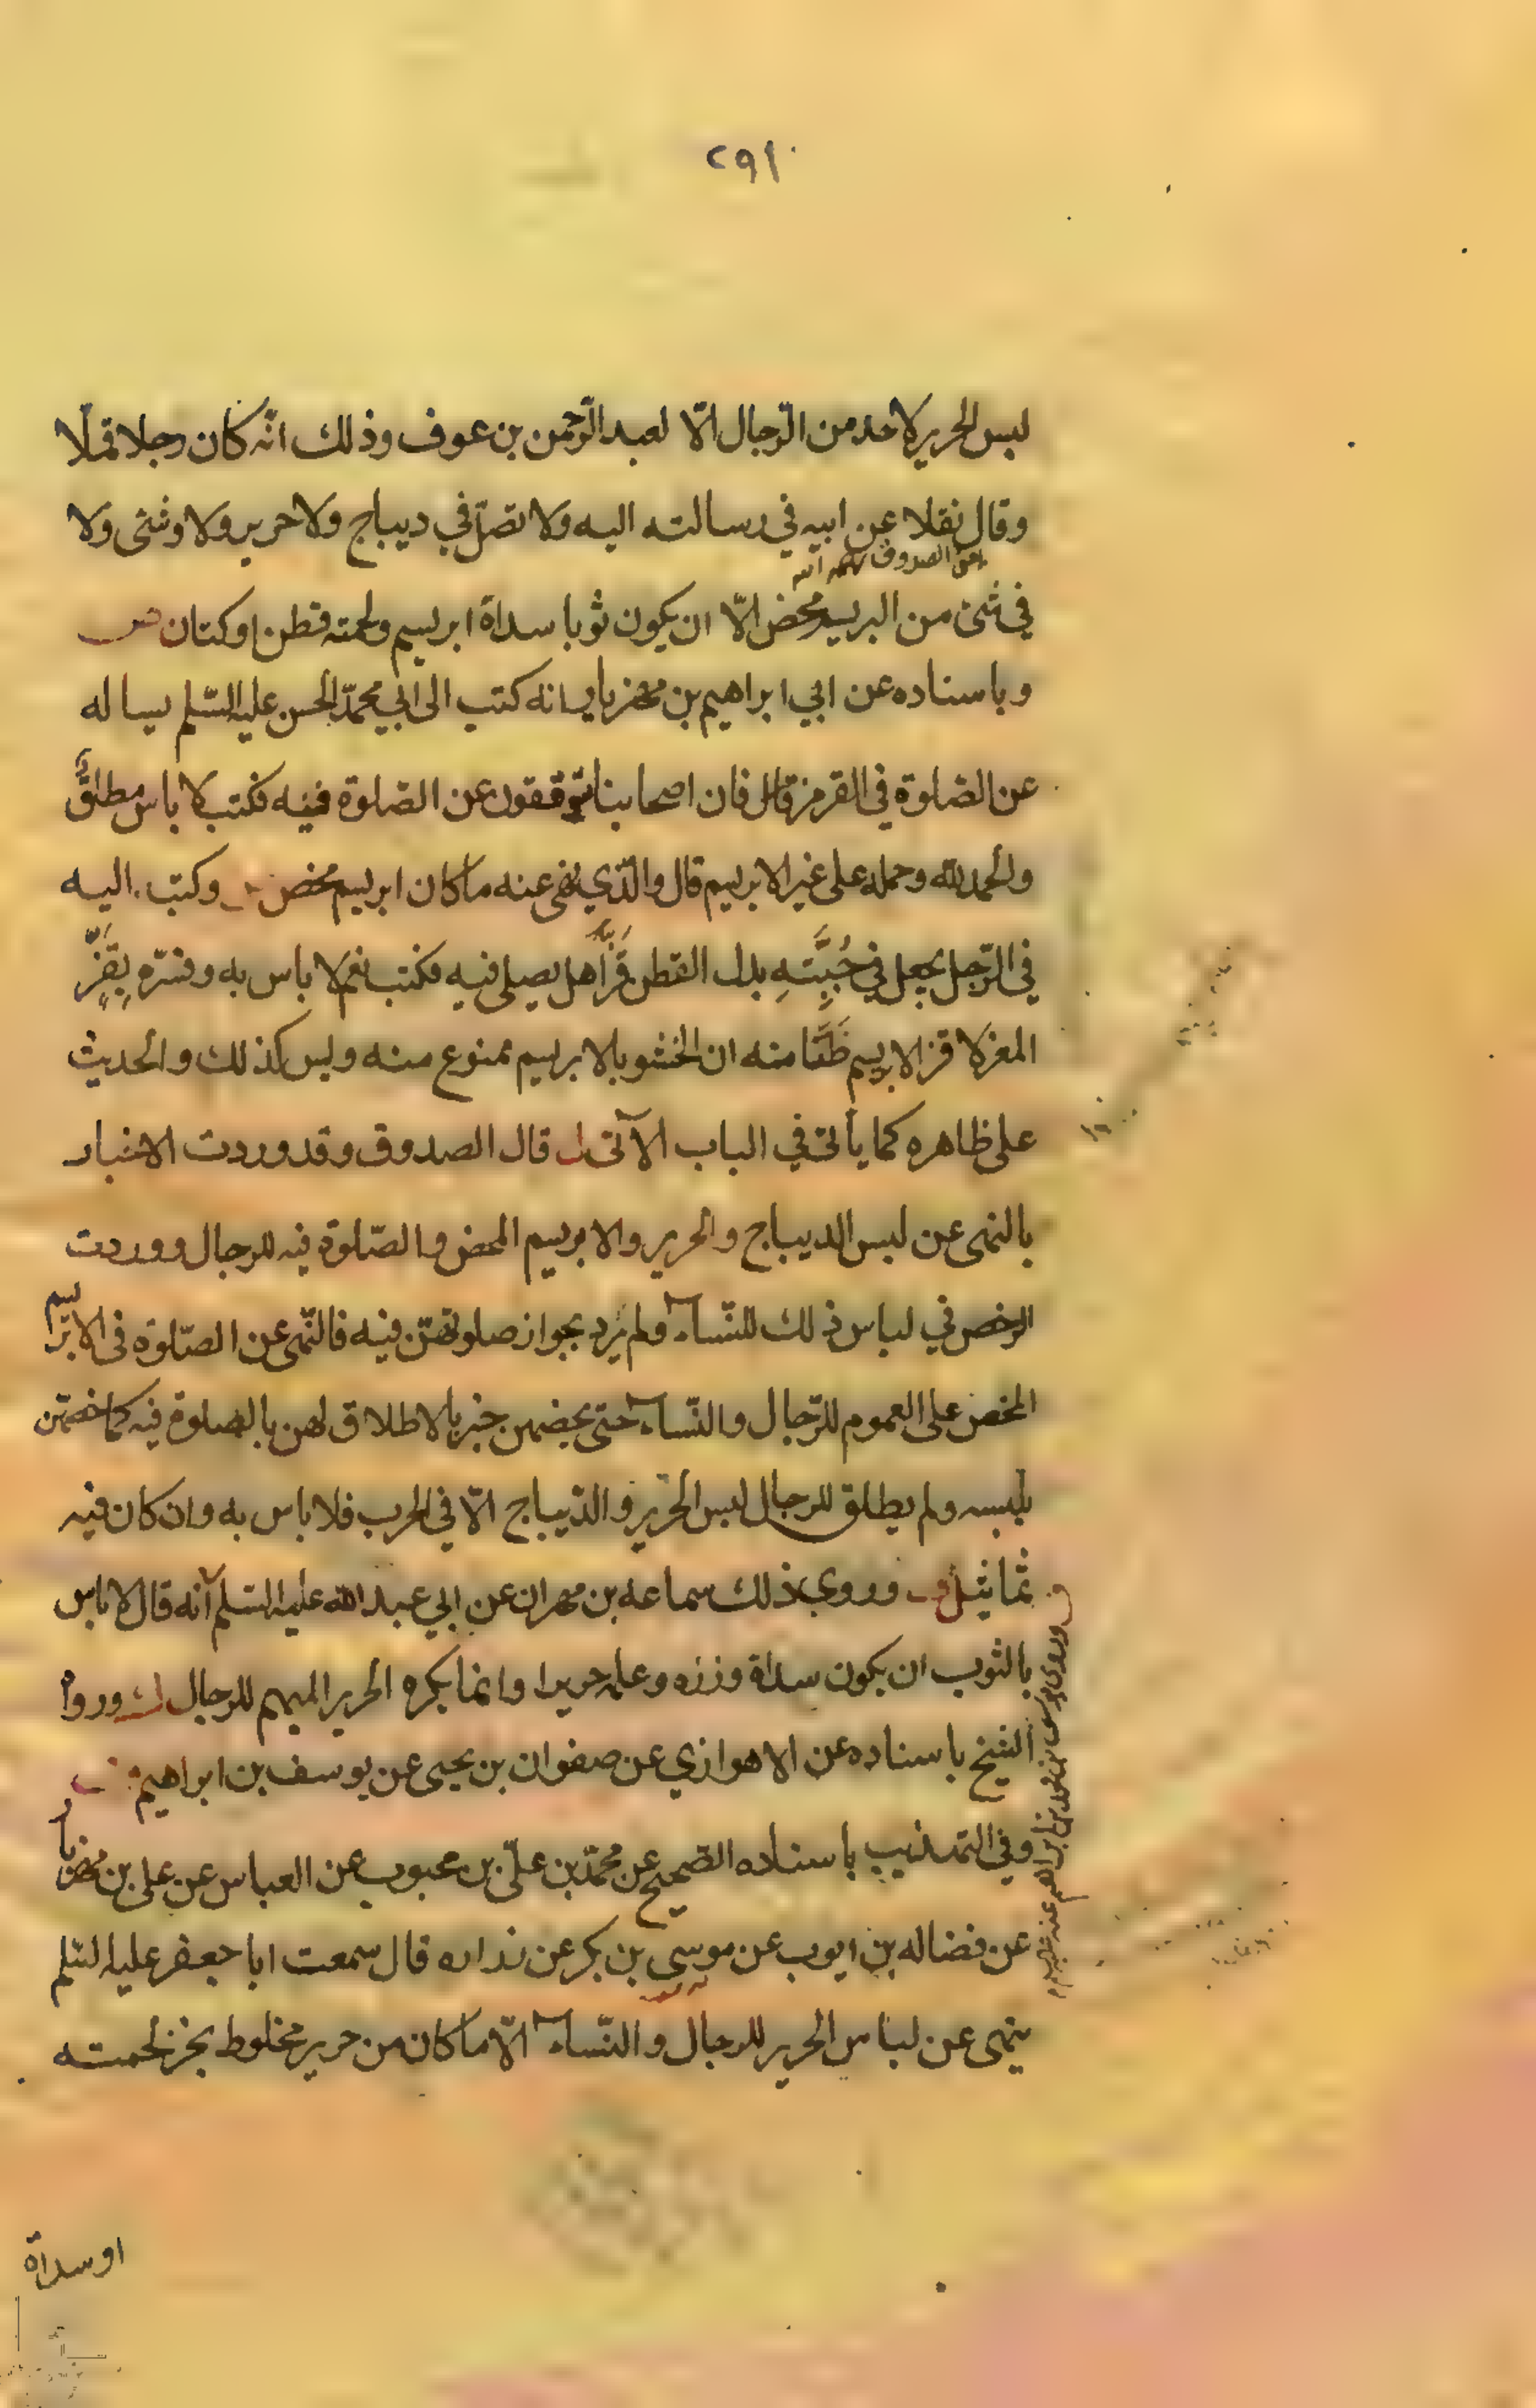 ٢٩١
لبس الحرير لاحد من الرّجال الّا لعبد الرّحمن بن عوف وذلك انّه كان رجلا قملا
وقال نقلا عن ابيه في رسالته اليه ولا تصلّ في ديباج ولا حرير ولا وشى ولا
الصدوق رحمه الله
في شئ من ابريسم محض الّا ان يكون ثوبا سداة ابريسم ولحمته قطن او كتان
وباسناده عن ابي ابراهيم بن مهزيار انه كتب الى ابي محمّد الحسن عليه السّلم يساله
عن الصّلوة في القرمز قال فان اصحابنا يتوقفون عن الصّلوة فيه فكتب لا باس مطلق
والحمد لله وحمله على غير الابريسم قال والّذي نهى عنه ما كان ابريسم محض وكتب اليه
في الرّجل يجعل في جُبَّتِهِ بدل القطن قَزّاً هل يصلى فيه فكتب نعم لا باس به وفسّره بِقَزِّ
المعز لا قز الابريسم ظَنّا منه ان الحشو بالابريسم ممنوع منه وليس كذلك والحديث
على ظاهره كما يأتى في الباب الآتى قال الصدوق وقد وردت الاخبار
بالنهى عن لبس الديباج والحرير والابريسم المحض والصّلوة فيه للرجال ووردت
الرخص في لباس ذلك للنّساء ولم يرد بجواز صلوتهنّ فيه فالنّهى عن الصّلوة فى الابريسم
المحض على العموم للرّجال والنّساء حتى يخصّهن خبر بالاطلاق لهن بالصلوة فيه كما خصّهن
بلبسه ولم يطلق للرجال لبس الحرير والدّيباج الّا في الحرب فلا باس به وان كان فيه
تماثيل وروي ذلك سماعه بن مهران عن ابي عبد الله عليه السّلم انه قال لا باس
بالثوب ان يكون سداة وزره وعلمه حريرا وانما يكره الحرير المبهم للرجال ورواه
الشيخ باسناده عن الاهوازي عن صفوان بن يحيى عن يوسف بن ابراهيم
وفي التهذيب باسناده الصّحيح عن محمّد بن عليّ بن محبوب عن العباس عن على بن مهزيار
عن فضاله بن ايوب عن موسى بن بكر عن زراره قال سمعت ابا جعفر عليه السّلم
ينهى عن لباس الحرير للرجال والنّساء الّا ما كان من حرير مخلوط بخز لحمته
او سداة